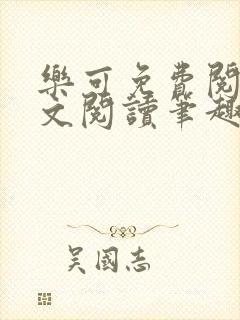 樂可免費閱
文閱讀筆趣
吴國志